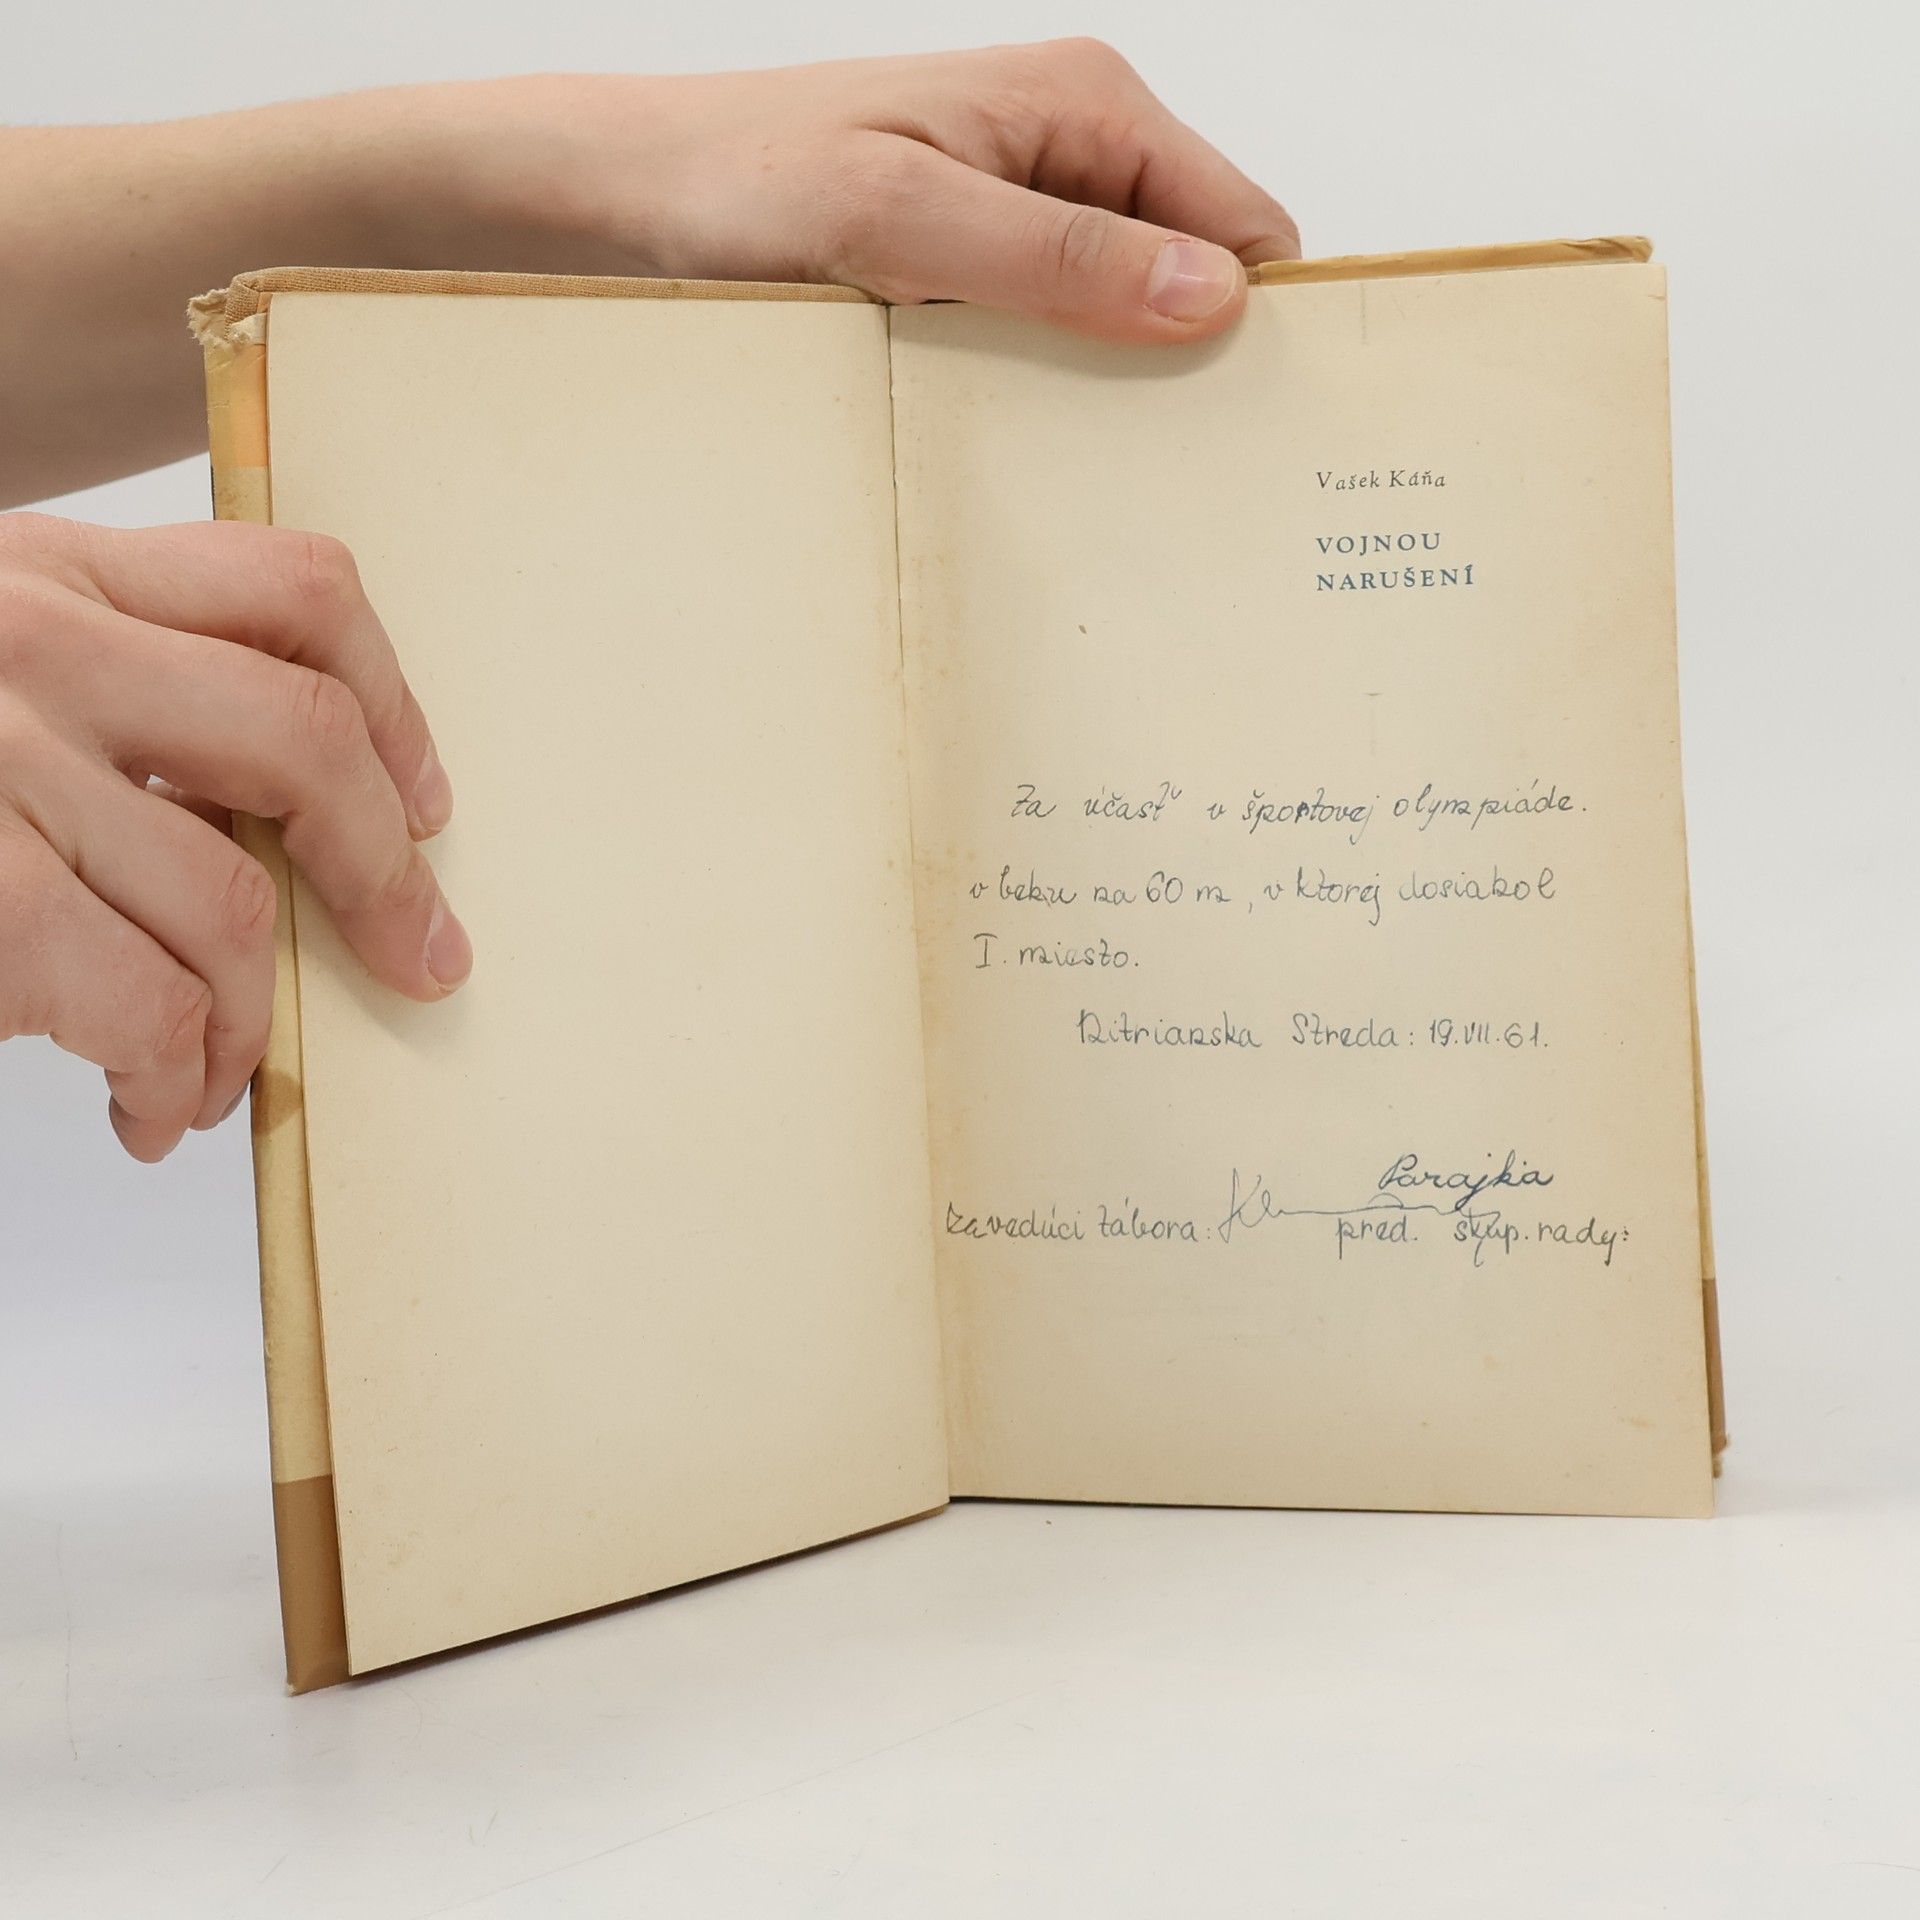 Vašek Káňa
VOJNOU
NARUŠENÍ
Za účasť v športovej olympiáde.
v behu na 60 m, v ktorej dosiahol
I. miesto.
Nitrianska Streda: 19.VII.61.
Parajka
za vedúci tábora: pred. skup. rady: